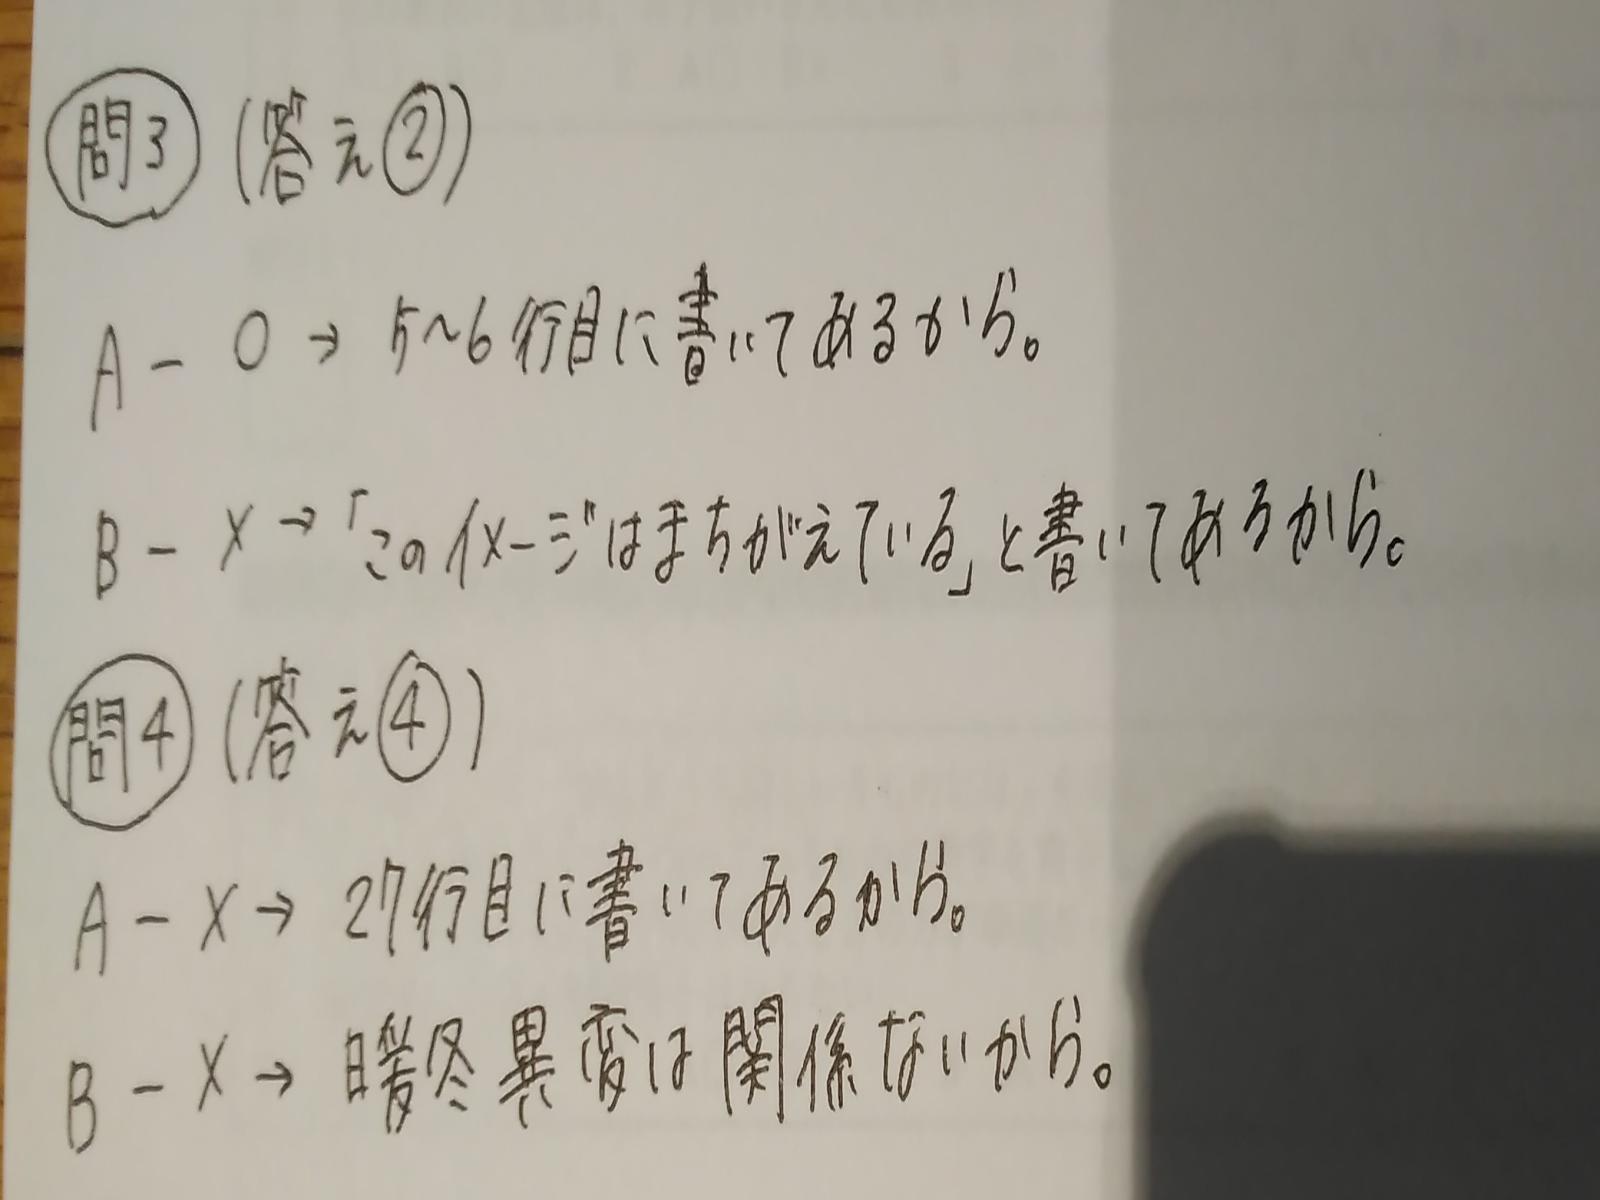 問3 (答え②)
A - 〇 → 5~6行目に書いてあるから。
B - × → 「このイメージはまちがえている」と書いてあるから。
問4 (答え④)
A - × → 27行目に書いてあるから。
B - × → 暖冬異変は関係ないから。